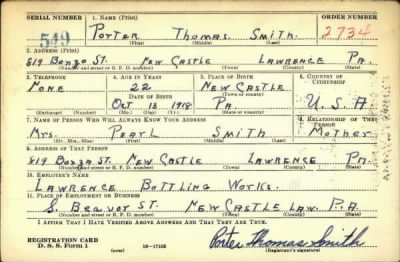 SERIAL NUMBER 1. NAME (Print) ORDER NUMBER
549 PORTER THOMAS SMITH. 2734
(First) (Middle) (Last)
2. ADDRESS (Print)
819 Bonzo ST. NEW CASTLE LAWRENCE PA.
(Number and street or R. F. D. number) (Town) (County) (State)
3. TELEPHONE 4. AGE IN YEARS 5. PLACE OF BIRTH 6. COUNTRY OF CITIZENSHIP
NONE 22 NEW CASTLE
DATE OF BIRTH (Town or county)
OCT 13 1918 PA. U.S.A.
(Exchange) (Number) (Mo.) (Day) (Yr.) (State or country)
7. NAME OF PERSON WHO WILL ALWAYS KNOW YOUR ADDRESS 8. RELATIONSHIP OF THAT PERSON
MRS. PEARL SMITH MOTHER
(Mr., Mrs., Miss) (First) (Middle) (Last)
9. ADDRESS OF THAT PERSON
819 ST. NEW CASTLE LAWRENCE PA.
(Number and street or R. F. D. number) (Town) (County) (State)
10. EMPLOYER'S NAME
LAWRENCE BOTTLING WORKS.
11. PLACE OF EMPLOYMENT OR BUSINESS
S. BEAVOR ST. NEW CASTLE LAW. P.A.
(Number and street or R. F. D. number) (Town) (County) (State)
I AFFIRM THAT I HAVE VERIFIED ABOVE ANSWERS AND THAT THEY ARE TRUE.
REGISTRATION CARD
D. S. S. Form 1 (over) 16—17105 Porter Thomas Smith
(Registrant's signature)